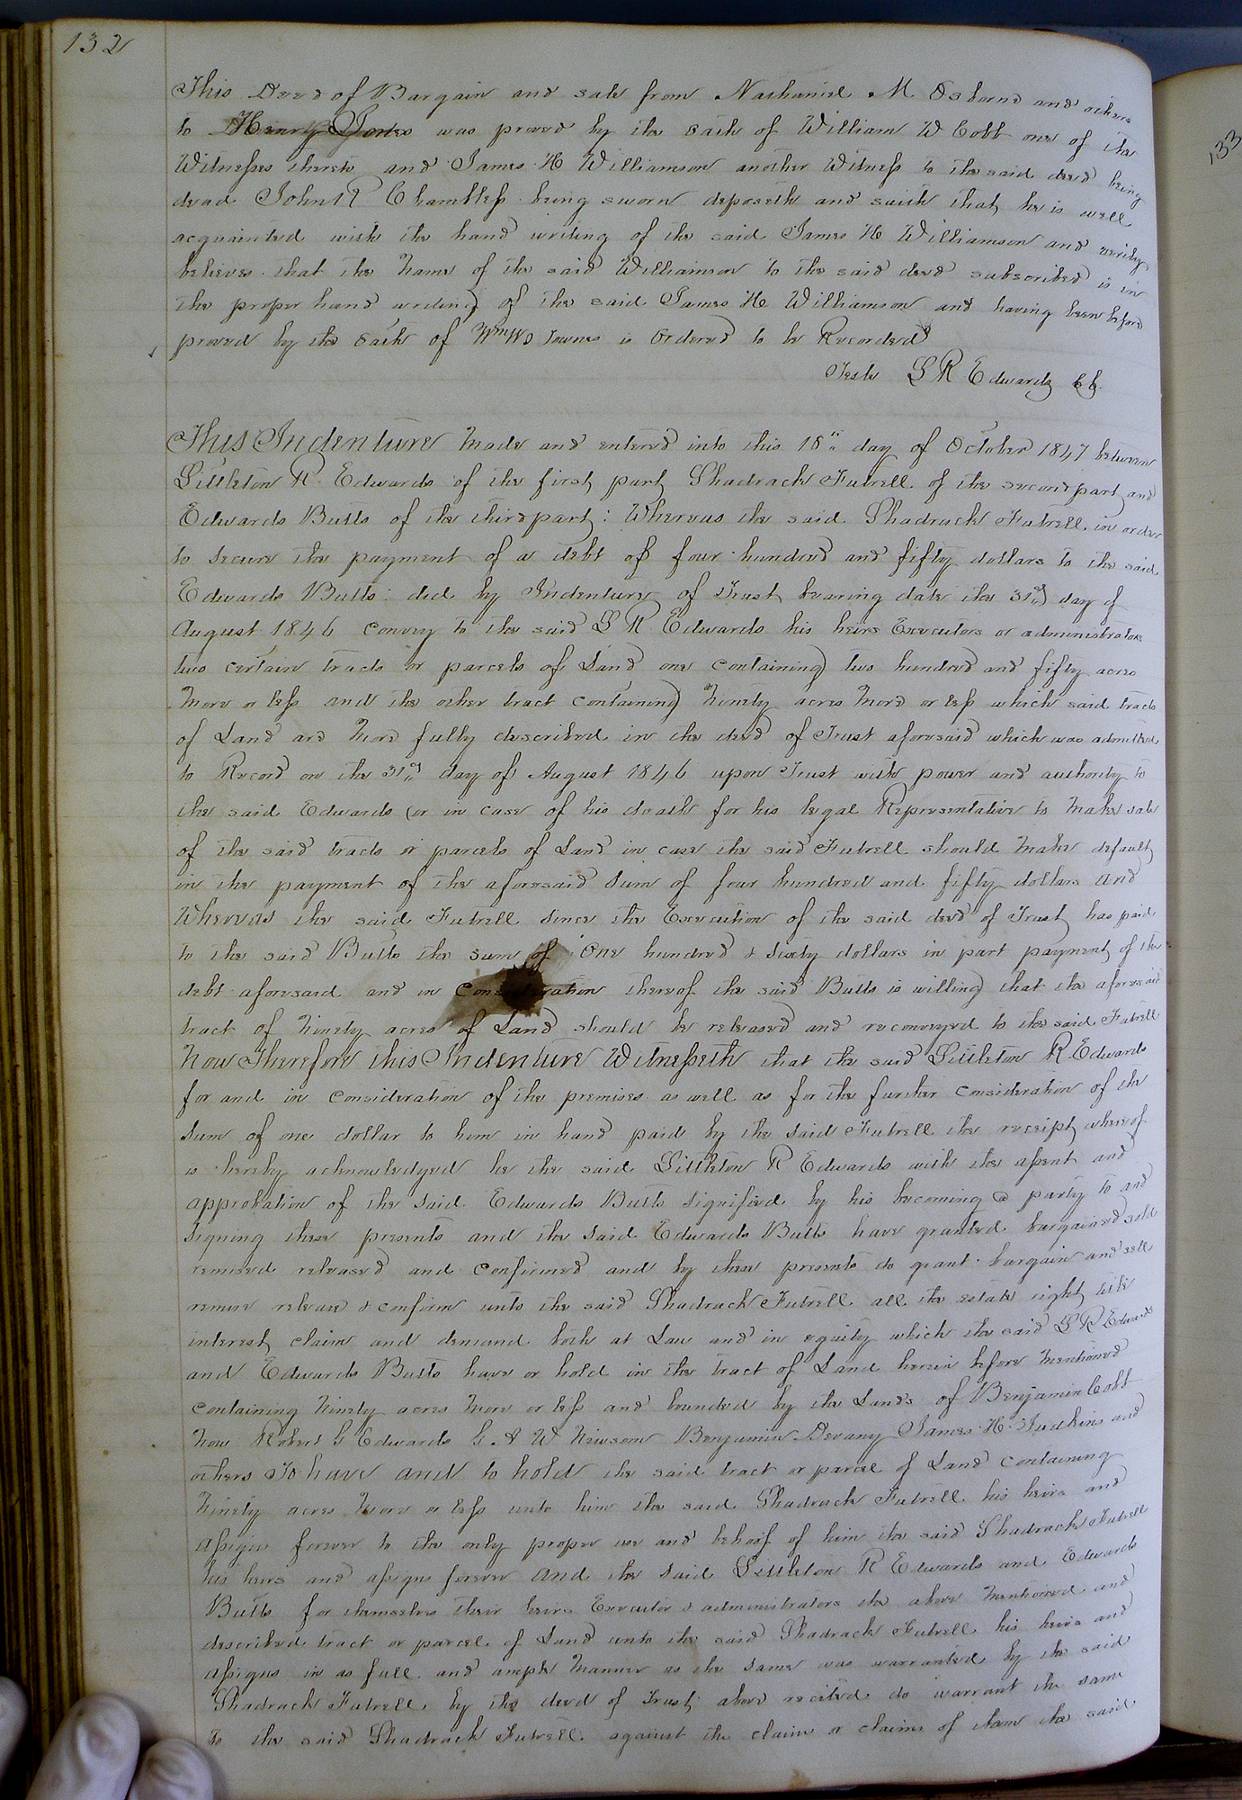 132
This Deed of Bargain and sale from Nathaniel M Osborne and others
to Henry Jones was proved by the oath of William W Cobb one of the
Witnesses thereto and James H Williamson another Witness to the said deed being
dead John R Chambless being sworn deposeth and saith that he is well
acquainted with the hand writing of the said James H Williamson and verily
believes that the name of the said Williamson to the said deed subscribed is in
the proper hand writing of the said James H Williamson and having been before
proved by the oath of Wm W Townes is Ordered to be Recorded
Teste L R Edwards CC
This Indenture Made and entered into this 18th day of October 1847 between
Littleton R Edwards of the first part Shadrack Futrell of the second part and
Edwards Butts of the third part: Whereas the said Shadrack Futrell in order
to secure the payment of a debt of four hundred and fifty dollars to the said
Edwards Butts did by Indenture of Trust bearing date the 31st day of
August 1846 convey to the said L R Edwards his heirs Executors or administrators
two certain tracts or parcels of Land one containing two hundred and fifty acres
more or less and the other tract containing Ninety acres More or less which said tracts
of Land are More fully described in the deed of Trust aforesaid which was admitted
to Record on the 31st day of August 1846 upon Trust with power and authority to
the said Edwards (or in case of his death for his legal Representative to Make sale
of the said tracts or parcels of Land in case the said Futrell should Make default
in the payment of the aforesaid Sum of four hundred and fifty dollars And
Whereas the said Futrell since the Execution of the said deed of Trust has paid
to the said Butts the sum of One hundred & Sixty dollars in part payment of the
debt aforesaid and in Consideration thereof the said Butts is willing that the aforesaid
tract of Ninety acres of Land should be released and reconveyed to the said Futrell
Now Therefore this Indenture Witnesseth that the said Littleton R Edwards
for and in consideration of the premises as well as for the further consideration of the
Sum of one dollar to him in hand paid by the said Futrell the receipt whereof
is hereby acknowledged he the said Littleton R Edwards with the assent and
approbation of the said Edwards Butts signified by his becoming a party to and
signing these presents and the said Edwards Butts have granted bargained sold
remised released and confirmed and by these presents do grant bargain and sell
remise release & confirm unto the said Shadrack Futrell all the estate right title
interest claim and demand both at Law and in equity which the said L R Edwards
and Edwards Butts have or hold in the tract of Land herein before Mentioned
containing Ninety acres More or less and bounded by the Lands of Benjamin Cobb
Now Robert G Edwards G. A W Newsom Benjamin Devany James H Judkins and
others To have and to hold the said tract or parcel of Land containing
Ninety acres More or less unto him the said Shadrack Futrell his heirs and
assigns forever to the only proper use and behoof of him the said Shadrack Futrell
his heirs and assigns forever and the said Littleton R Edwards and Edwards
Butts for themselves their heirs Executors & administrators the above Mentioned and
described tract or parcel of Land unto the said Shadrack Futrell his heirs and
assigns in as full and ample Manner as the same was warranted by the said
Shadrack Futrell by the deed of Trust above recited do warrant the same
to the said Shadrack Futrell against the claim or claims of them the said
133